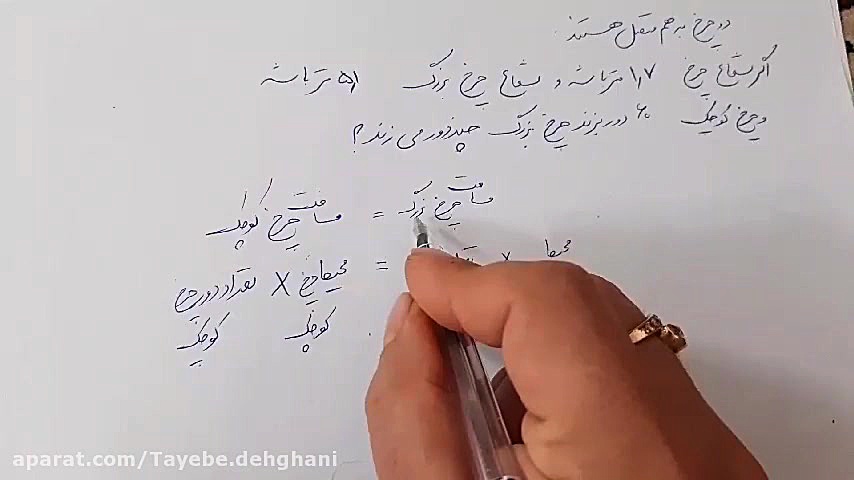 دو چرخ به هم متصل هستند.
اگر شعاع چرخ ۱٫۷ متر باشد و شعاع چرخ بزرگ ۵٫۱ متر باشد
و چرخ کوچک ۶۰ دور بزند چرخ بزرگ چند دور می زند؟
مسافت چرخ بزرگ = مسافت چرخ کوچک
محیط × = محیط چرخ × تعداد دور چرخ
کوچک کوچک
aparat.com/Tayebe.dehghani